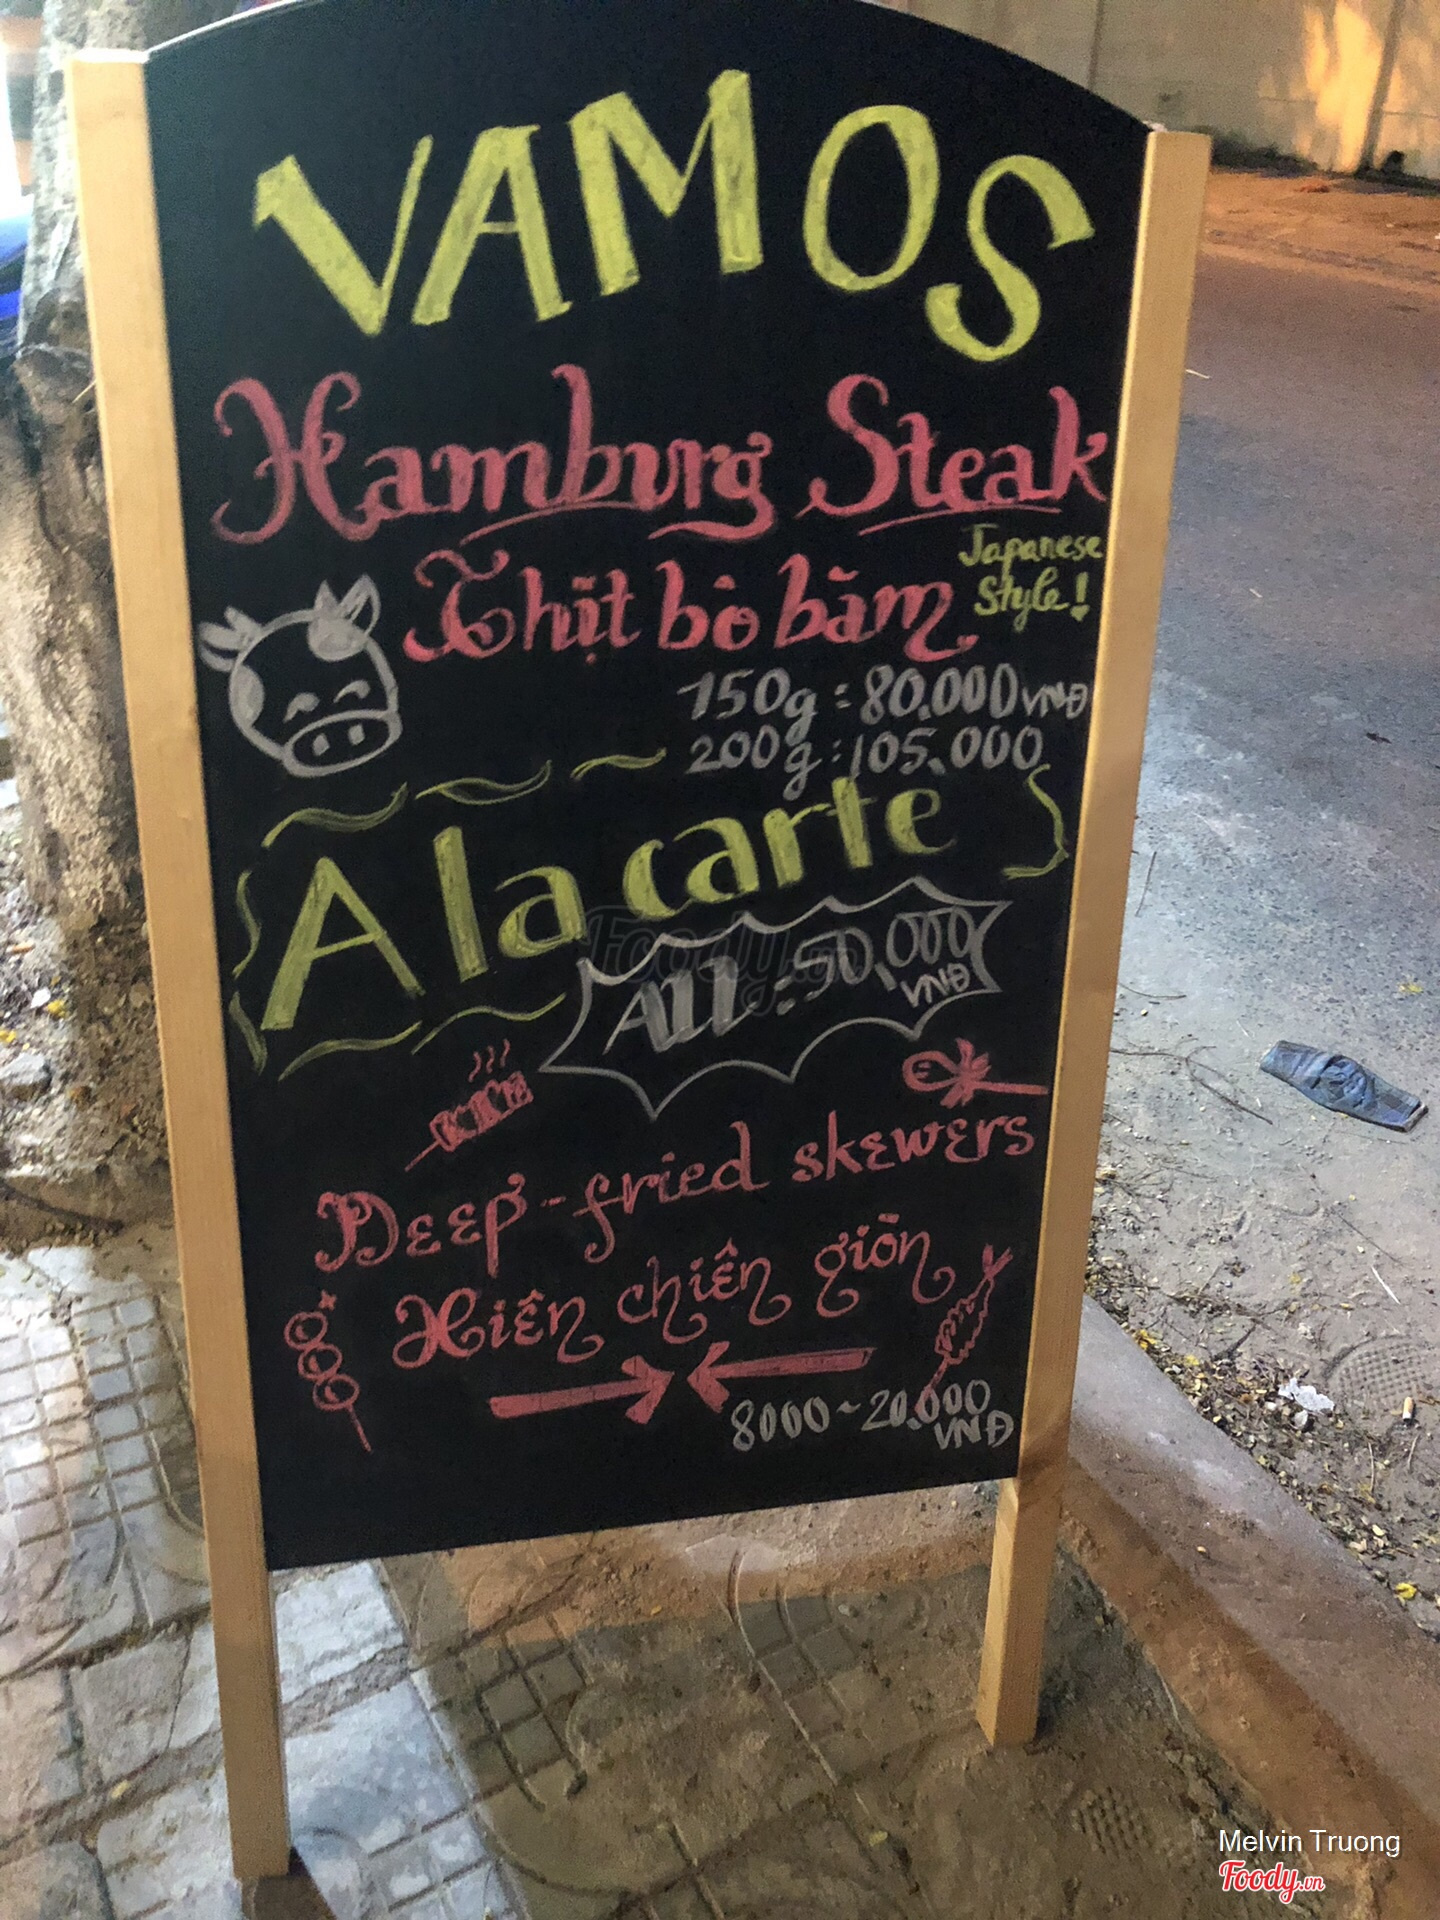 VAMOS
Hamburg Steak
Thịt bò băm
Japanese
Style!
150g = 80.000 VNĐ
200g : 105.000
A la carte
All : 50,000
VNĐ
Deep-fried skewers
Hiên chiên giòn
8000 ~ 20.000
VNĐ
Foody.vn
Melvin Truong
Foody.vn